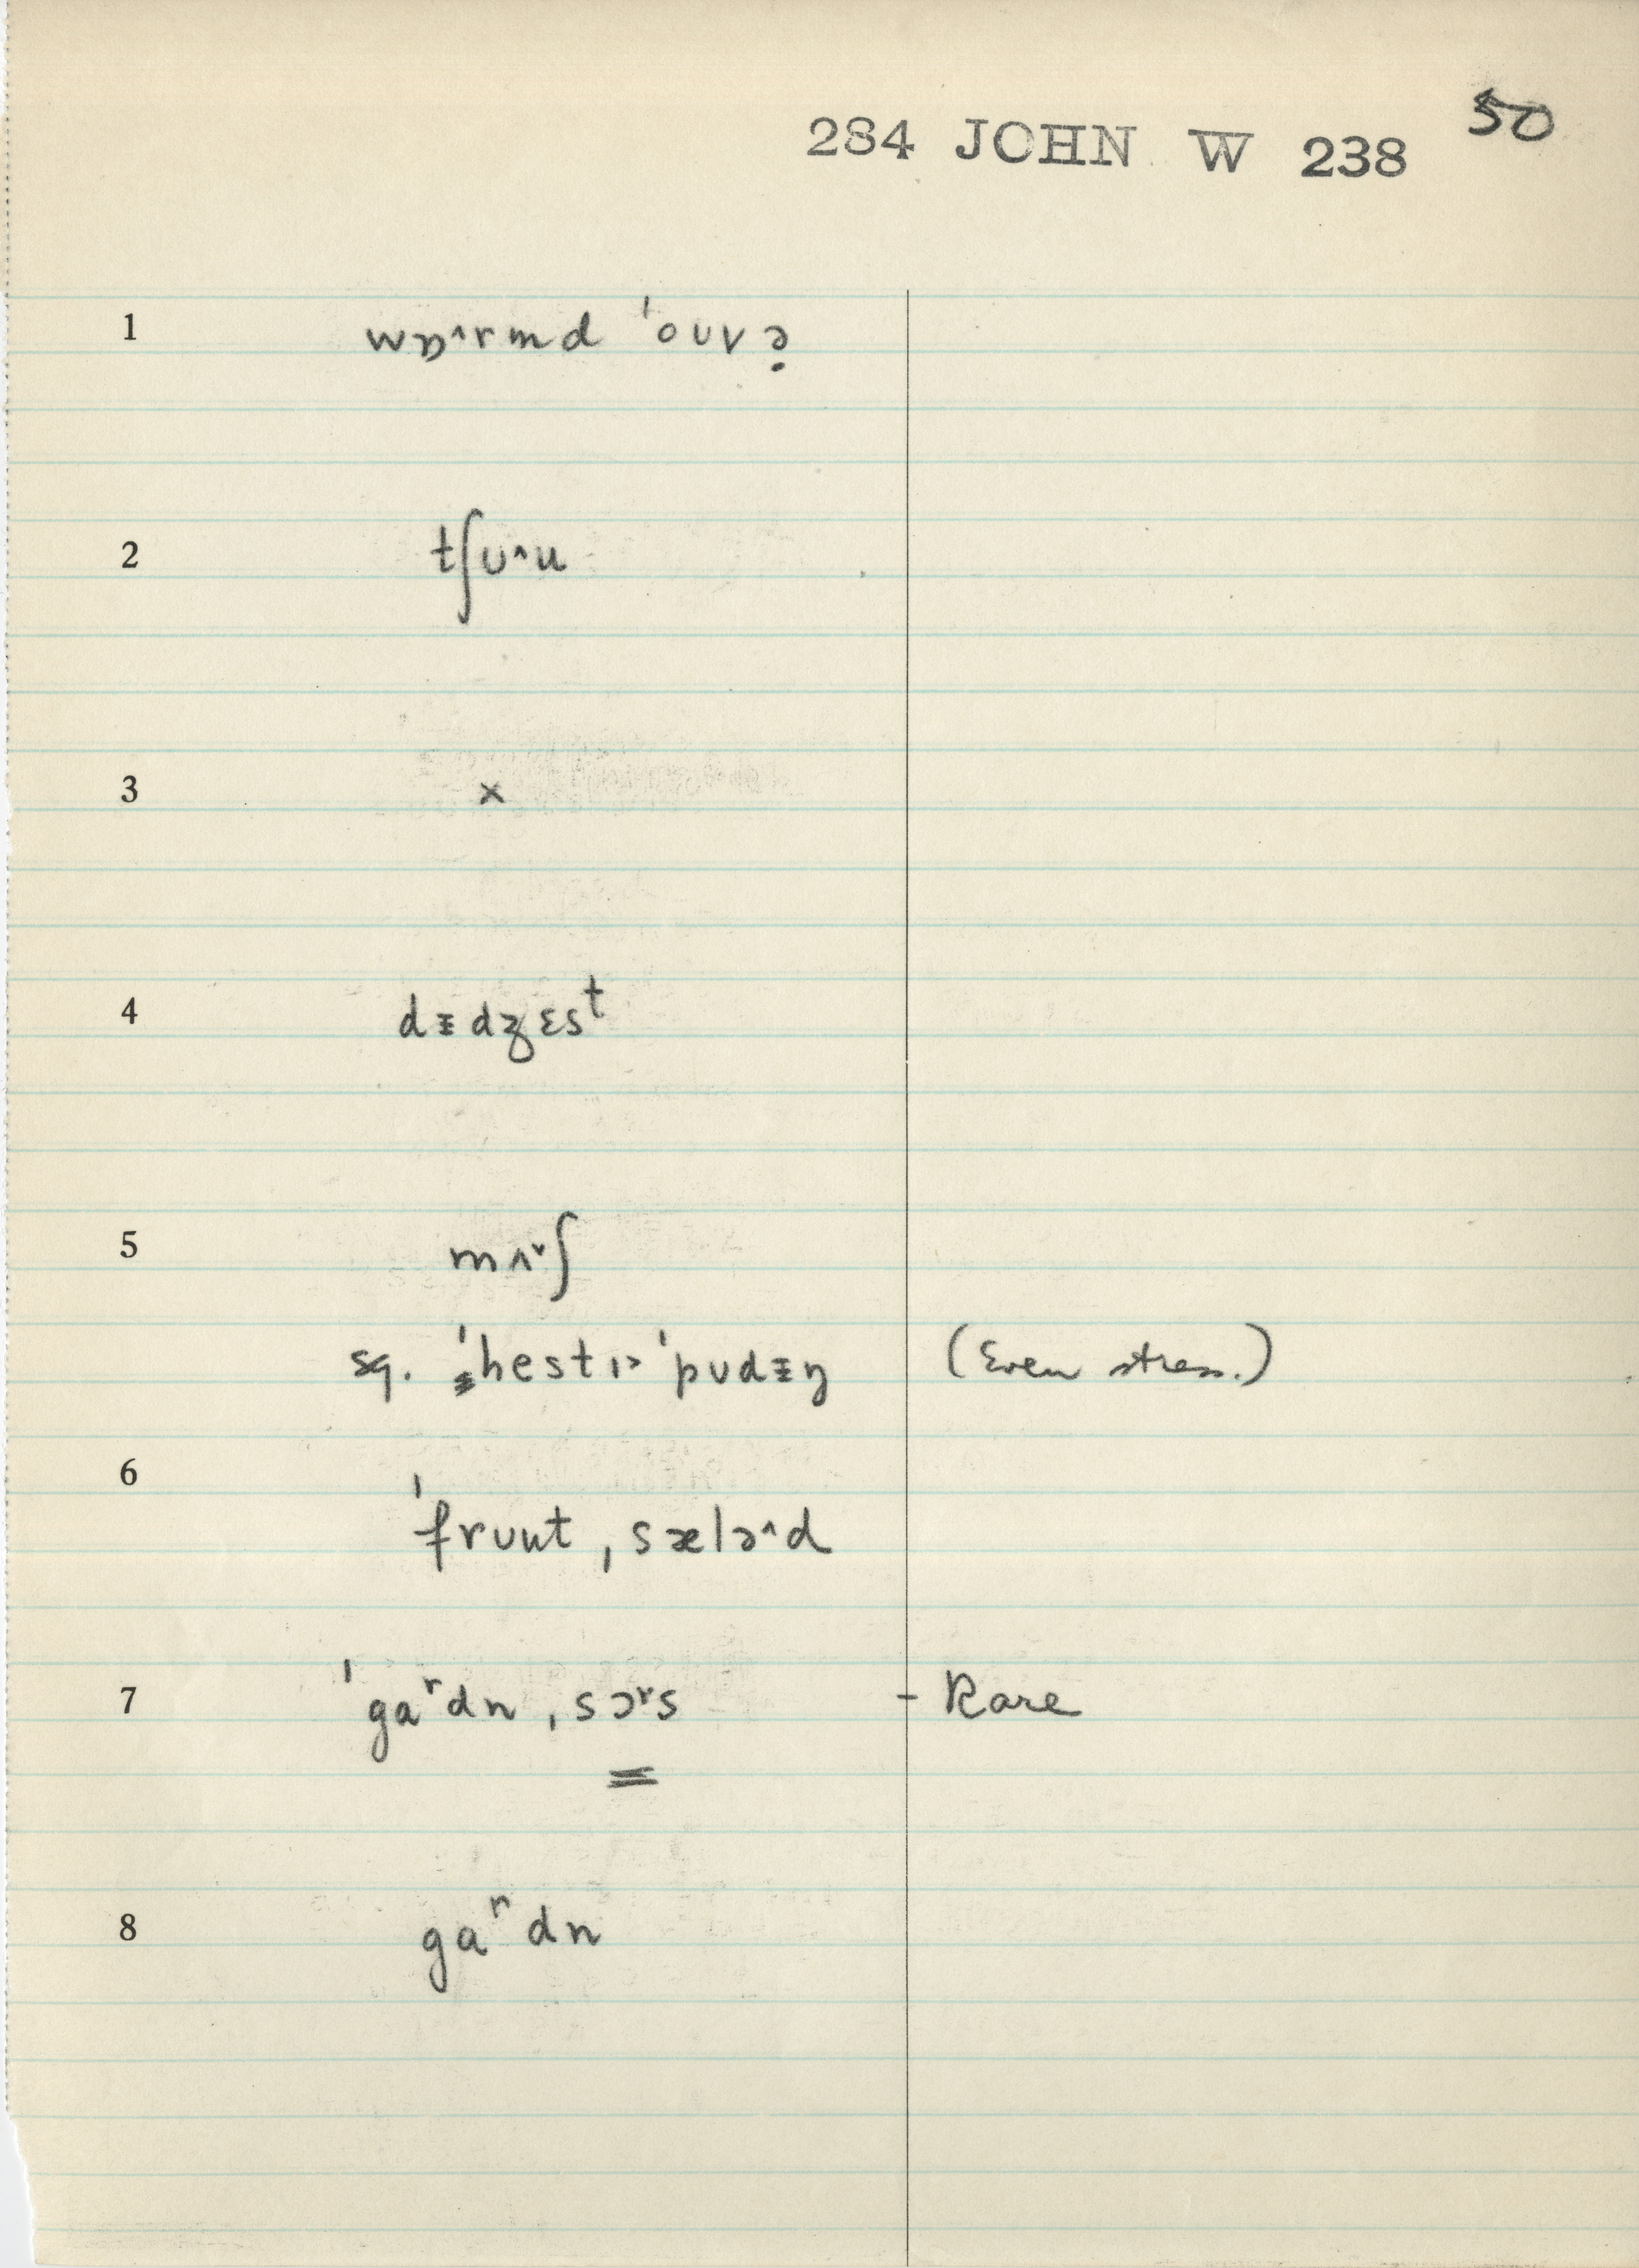 50
284 JOHN W 238
1 wɒ˄rmd ˈoʊvə̣
2 tʃʊ˄u
3 ×
4 dᵻdʒɛsᵗ
5 mʌ˅ʃ
sq. ˈhestɪ˃ ˈpʊdᵻŋ (Even stress.)
6 ˈfrʊut ˌsælə˄d
7 ˈgaʳdn ˌsɔʳs - Rare
8 gaʳdn